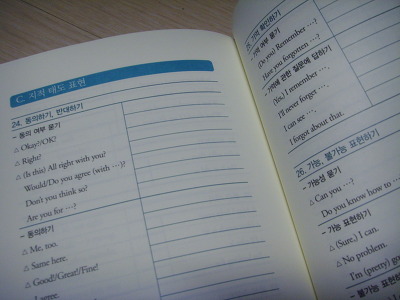 C. 지적 태도 표현
24. 동의하기, 반대하기
– 동의 여부 묻기
△ Okay?/OK!
△ Right?
△ (Is this) All right with you?
Would/Do you agree (with …)?
Don't you think so?
Are you for …?
– 동의하기
△ Me, too.
△ Same here.
△ Good!/Great!/Fine!
I agree.
25. 기억 확인하기
– 기억 여부 묻기
(Do you) Remember …?
Have you forgotten …?
– 기억에 관한 질문에 답하기
(Yes,) I remember …
I'll never forget …
I can see …
I forgot about that.
26. 가능, 불가능 표현하기
– 가능성 묻기
△ Can you …?
Do you know how to …
– 가능 표현하기
△ (Sure,) I can.
△ No problem.
I'm (pretty) good